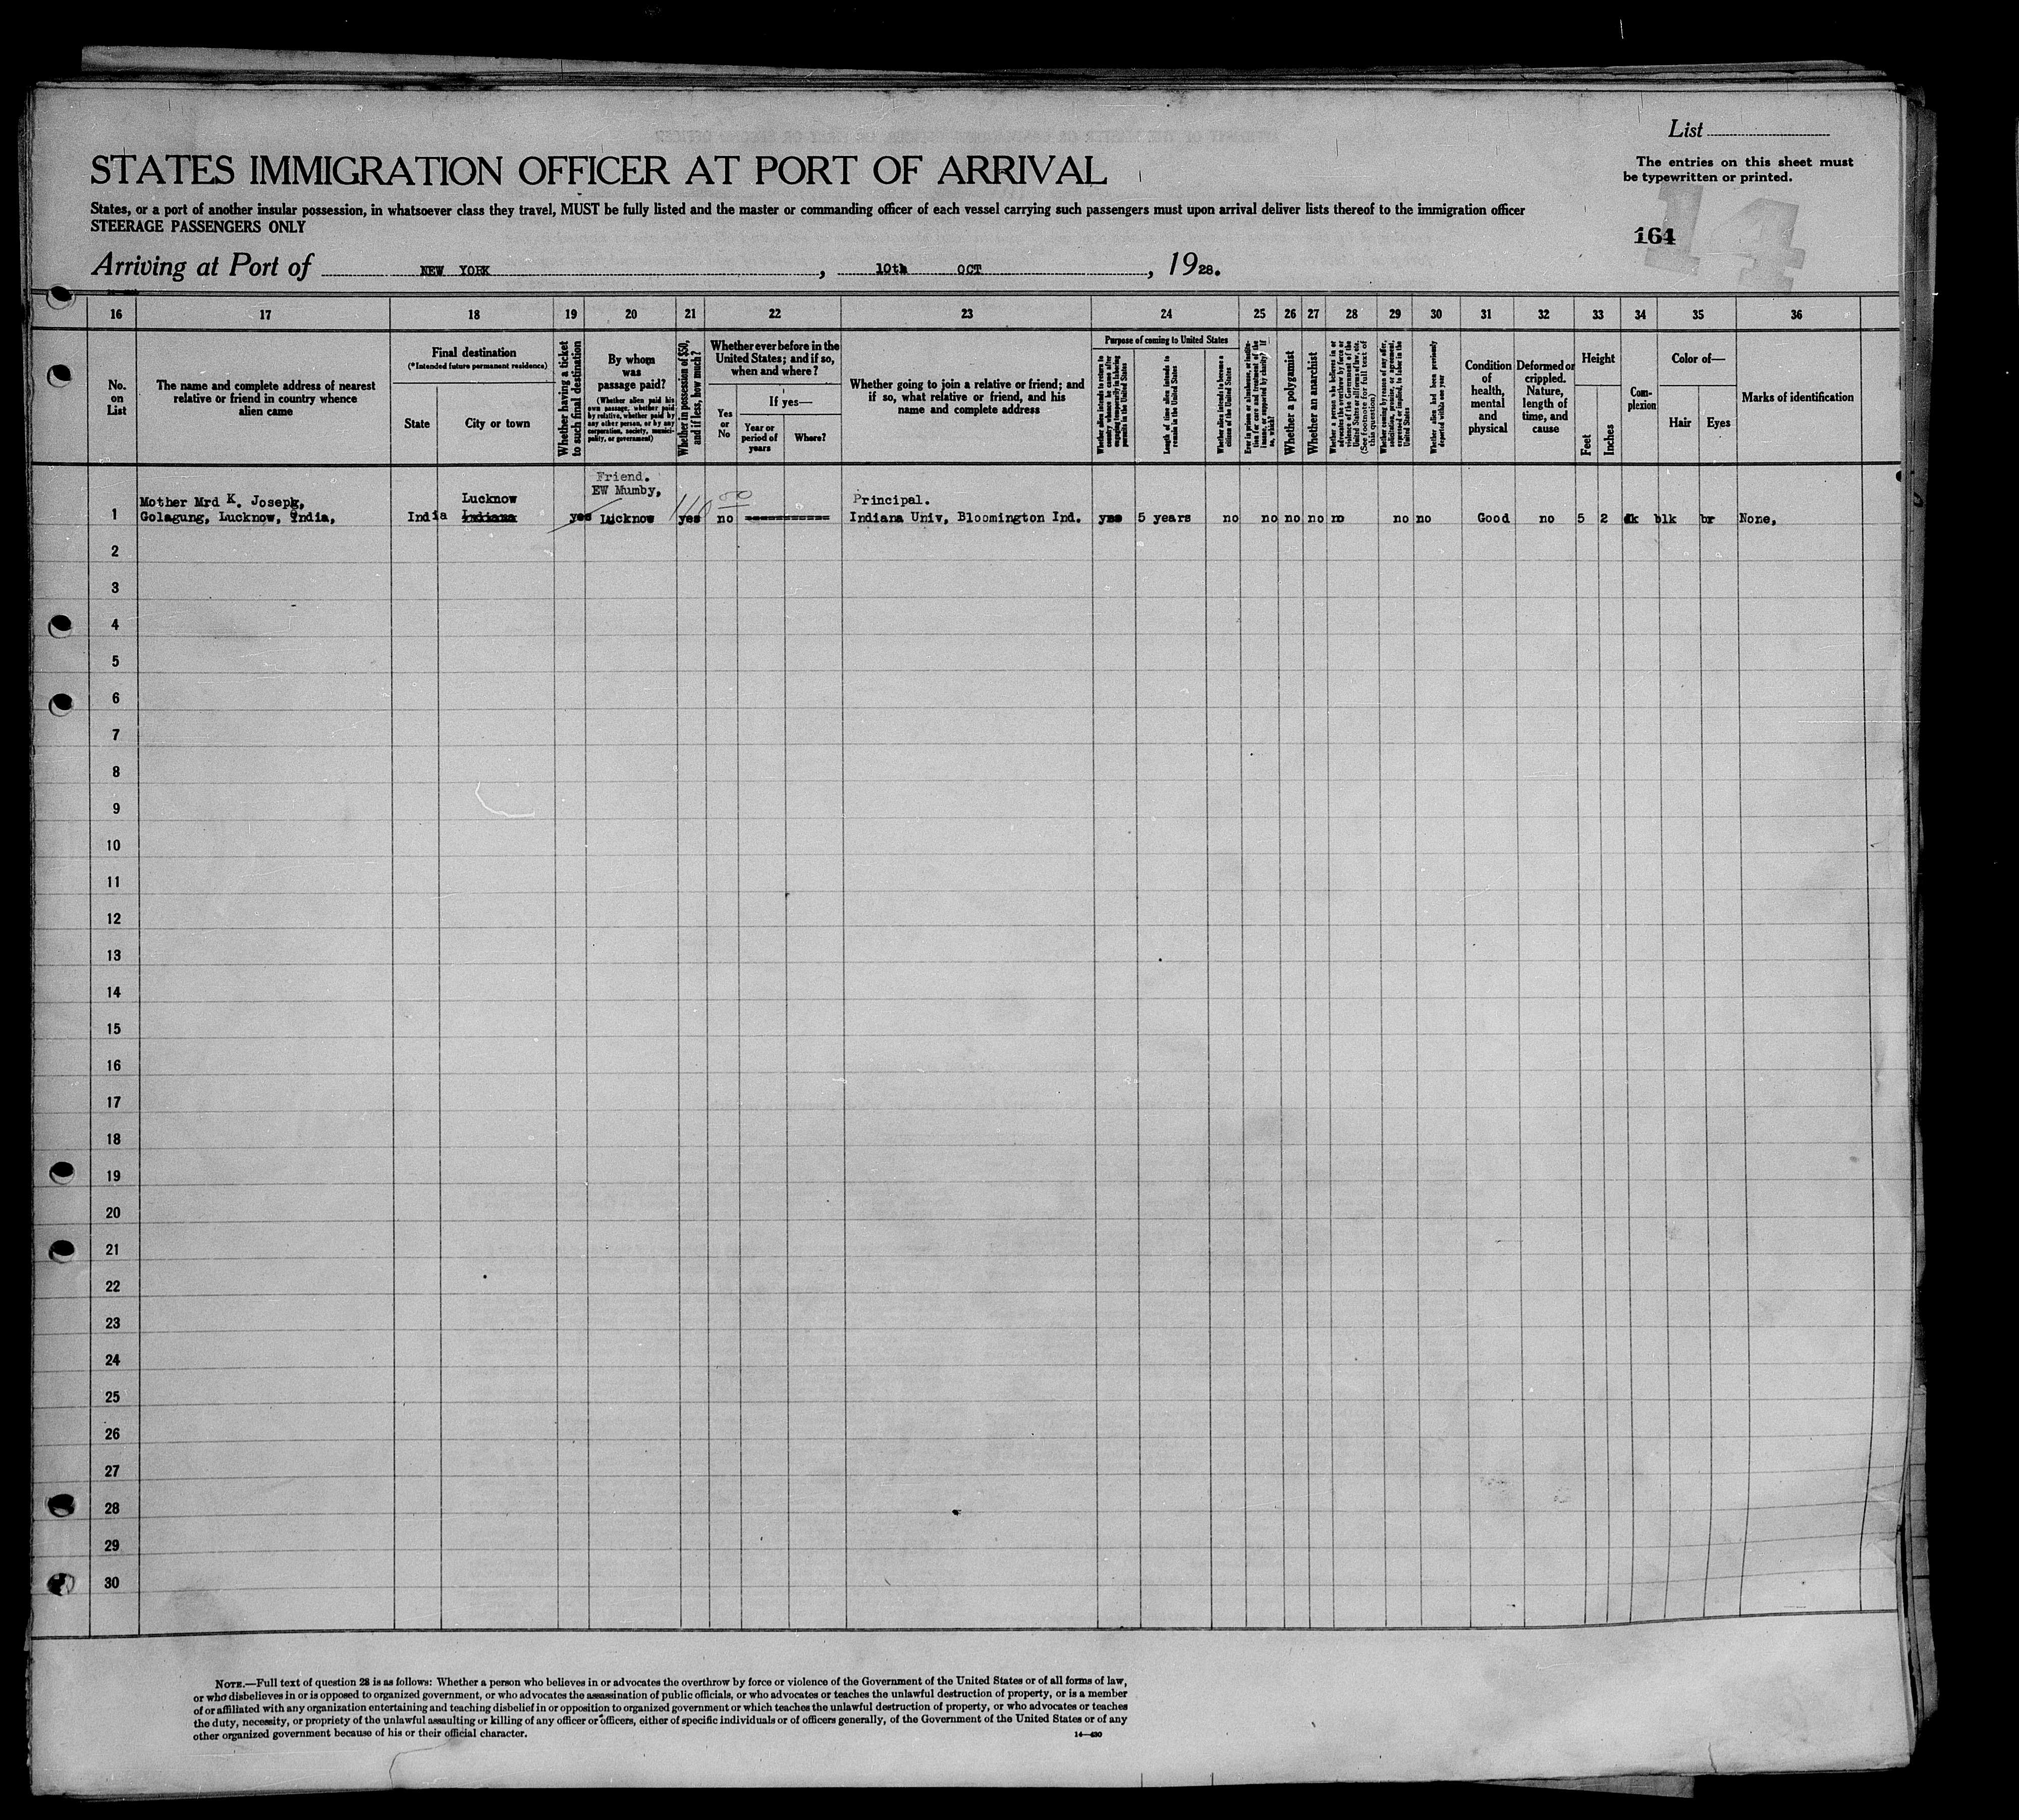 List
The entries on this sheet must
be typewritten or printed.
STATES IMMIGRATION OFFICER AT PORT OF ARRIVAL
States, or a port of another insular possession, in whatsoever class they travel, MUST be fully listed and the master or commanding officer of each vessel carrying such passengers must upon arrival deliver lists thereof to the immigration officer
STEERAGE PASSENGERS ONLY
14
164
Arriving at Port of NEW YORK, 10th OCT, 1928.
16 17 18 19 20 21 22 23 24 25 26 27 28 29 30 31 32 33 34 35 36
No. on List
The name and complete address of nearest relative or friend in country whence alien came
Final destination
(*Intended future permanent residence)
State
City or town
Whether having a ticket to such final destination
By whom was passage paid?
(Whether alien paid his own passage, whether paid by relative, whether paid by any other person, or by any corporation, society, municipality, or government)
Whether in possession of $50, and if less, how much?
Whether ever before in the United States; and if so, when and where?
Yes or No
If yes—
Year or period of years
Where?
Whether going to join a relative or friend; and if so, what relative or friend, and his name and complete address
Purpose of coming to United States
Length of time alien intends to remain in the United States
Whether alien intends to become a citizen of the United States
Whether a polygamist
Whether an anarchist
(See footnote for full text of this question)
Whether alien had been previously deported within one year
Condition of health, mental and physical
Deformed or crippled. Nature, length of time, and cause
Height
Feet
Inches
Complexion
Color of—
Hair
Eyes
Marks of identification
Friend.
EW Mumby,
Mother Mrd K. Joseph, Lucknow Principal.
1 Golagung, Lucknow, India, India Indiana yes Lucknow yes no Indiana Univ, Bloomington Ind. yes 5 years no no no no no no no Good no 5 2 dk blk br None,
2
3
4
5
6
7
8
9
10
11
12
13
14
15
16
17
18
19
20
21
22
23
24
25
26
27
28
29
30
NOTE.—Full text of question 28 is as follows: Whether a person who believes in or advocates the overthrow by force or violence of the Government of the United States or of all forms of law,
or who disbelieves in or is opposed to organized government, or who advocates the assassination of public officials, or who advocates or teaches the unlawful destruction of property, or is a member
of or affiliated with any organization entertaining and teaching disbelief in or opposition to organized government or which teaches the unlawful destruction of property, or who advocates or teaches
the duty, necessity, or propriety of the unlawful assaulting or killing of any officer or officers, either of specific individuals or of officers generally, of the Government of the United States or of any
other organized government because of his or their official character.
14—430